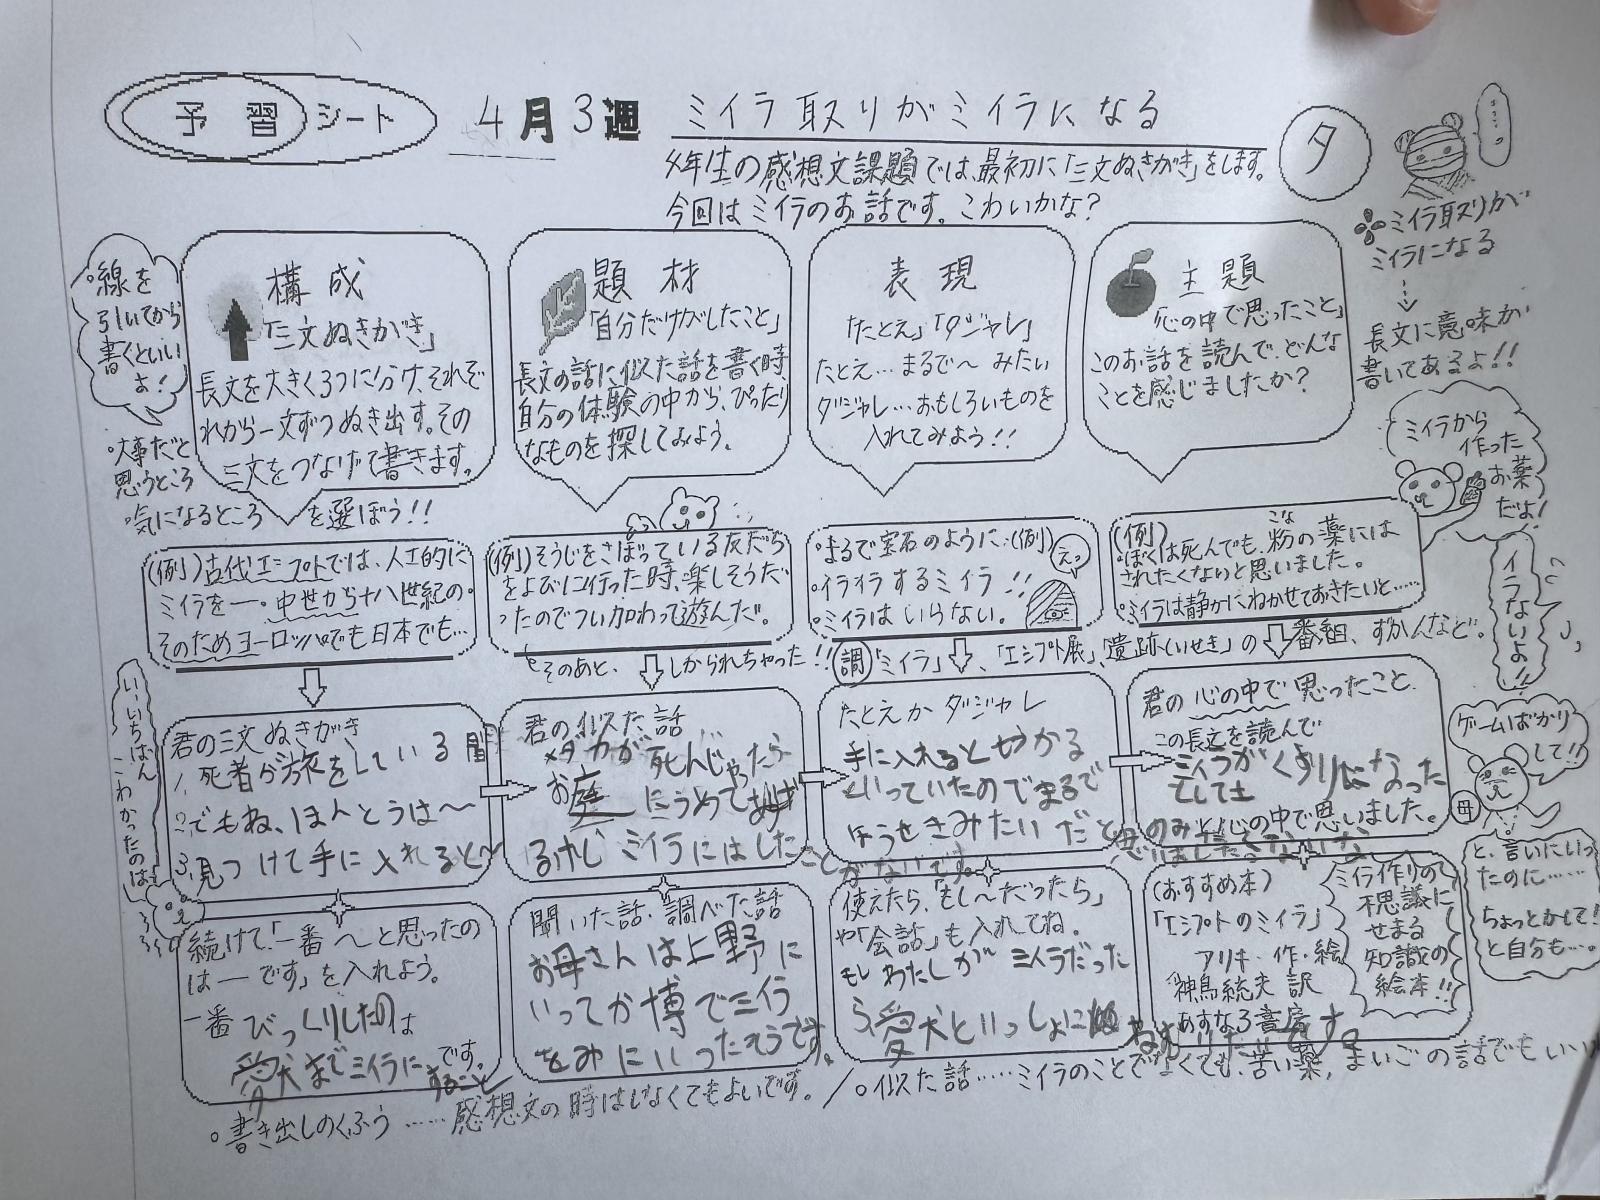 予習シート 4月3週 ミイラ取りがミイラになる
タ
4年生の感想文課題では、最初に「三文ぬきがき」をします。
今回はミイラのお話です。こわいかな?
ミイラ取りが
ミイラになる
長文に意味が
書いてあるよ!!
線を
引いてから
書くといい
よ!
・大事だと
思うところ
・気になるところ を選ぼう!!
構成
「三文ぬきがき」
長文を大きく3つに分け、それぞ
れから一文ずつぬき出す。その
三文をつなげて書きます。
題材
「自分だけがしたこと」
長文の話に似た話を書く時
自分の体験の中から、ぴったり
なものを探してみよう。
表現
「たとえ」「ダジャレ」
たとえ…まるで〜みたい
ダジャレ…おもしろいものを
入れてみよう!!
主題
「心の中で思ったこと」
このお話を読んで、どんな
ことを感じましたか?
ミイラから
作った
お薬
だよ!
イラないよ!!
(例)古代エジプトでは、人工的に
ミイラを一。中世から十八世紀の・
そのためヨーロッパでも日本でも…
(例)そうじをさぼっている友だち
をよびに行った時、楽しそうだ
ったのでつい加わって遊んだ。
そのあと、しかられちゃった!!
・まるで宝石のように…(例)
・イライラするミイラ!!
・ミイラはいらない。
えっ
(例)
・ぼくは死んでも、粉の薬には
こな
されたくないと思いました。
・ミイラは静かにねかせておきたいと……
調「ミイラ」、「エジプト展」、「遺跡(いせき)」の番組、ずかんなど。
い・いちばん
こわかったのは
君の三文ぬきがき
1、死者が旅をしている間
2、でもね、ほんとうは〜
3、見つけて手に入れると〜
君の似た話
メダカが死んじゃったら
お庭にうめてあげ
るけどミイラにはしたこと
がないです。
たとえかダジャレ
手に入れると切かる
といっていたのでまるで
ほうせきみたいだと
君の心の中で思ったこと
この長文を読んで
ミイラがくすりになった
のみと心の中で思いました。
ゲームばかり
して!!
母
と、言いにいっ
たのに……
ちょっとかして!
と自分も…。
続けて、「一番〜と思ったの
は―です」を入れよう。
一番びっくりしたのは
愛犬までミイラに
すること
です。
聞いた話・調べた話
お母さんは上野に
いってか博でミイラ
をみにいったそうです。
使えたら、「もし〜だったら」
や「会話」も入れてね。
もしわたしがミイラだった
ら、愛犬といっしょに
ねむりたいです。
(おすすめ本)
「エジプトのミイラ」
アリキ・作・絵
神鳥統夫 訳
あすなろ書房
ミイラ作りの
不思議に
せまる
知識の
絵本!!
・書き出しのくふう……感想文の時はしなくてもよいです。/・似た話……ミイラのことでなくても、苦い薬、まいごの話でもいい